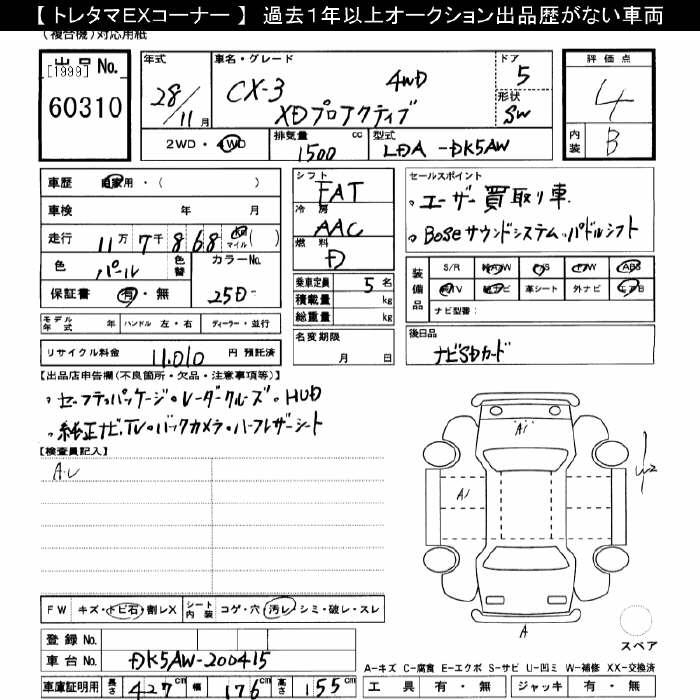 【トレタマEXコーナー】 過去1年以上オークション出品歴がない車両
(複合機)対応用紙
出品 No.
[1999]
60310
年式
28/11月
車名・グレード
CX-3 4WD
XDプロアクティブ
ドア
5
形状
SW
評価点
4
内装
B
2WD・4WD
排気量
1500 cc
型式
LDA-DK5AW
車歴 自家用・( )
車検 年 月
走行 11万7千868 Km マイル ( )
色 パール
色替
カラーNo.
25D-
保証書 有・無
シフト
FAT
冷房
AAC
燃料
D
乗車定員 5 名
積載量 kg
総重量 kg
セールスポイント
。ユーザー買取り車
。Boseサウンドシステム。パドルシフト
装備品
S/R 純A/W P/S P/W ABS
純TV 純ナビ 革シート 外ナビ エアB
ナビ型番:
モデル年式 年 ハンドル 左・右 ディーラー・並行
名変期限
月 日
後日品
ナビSDカード
リサイクル料金 11,010 円 預託済
【出品店申告欄(不良箇所・欠品・注意事項等)】
。セーフティパッケージ。レーダークルーズ。HUD
。純正ナビ.TV。バックカメラ。ハーフレザーシート
【検査員記入】
A.U
A1
A1
A
W2
スペア
FW キズ・トビ石・割レX
シート内装 コゲ・穴・汚レ・シミ・破レ・スレ
登録 No.
車台 No. DK5AW-200415
車庫証明用 長さ 427cm 幅 176cm 高さ 155cm
A-キズ C-腐食 E-エクボ S-サビ U-凹ミ W-補修 XX-交換済
工具 有・無 ジャッキ 有・無